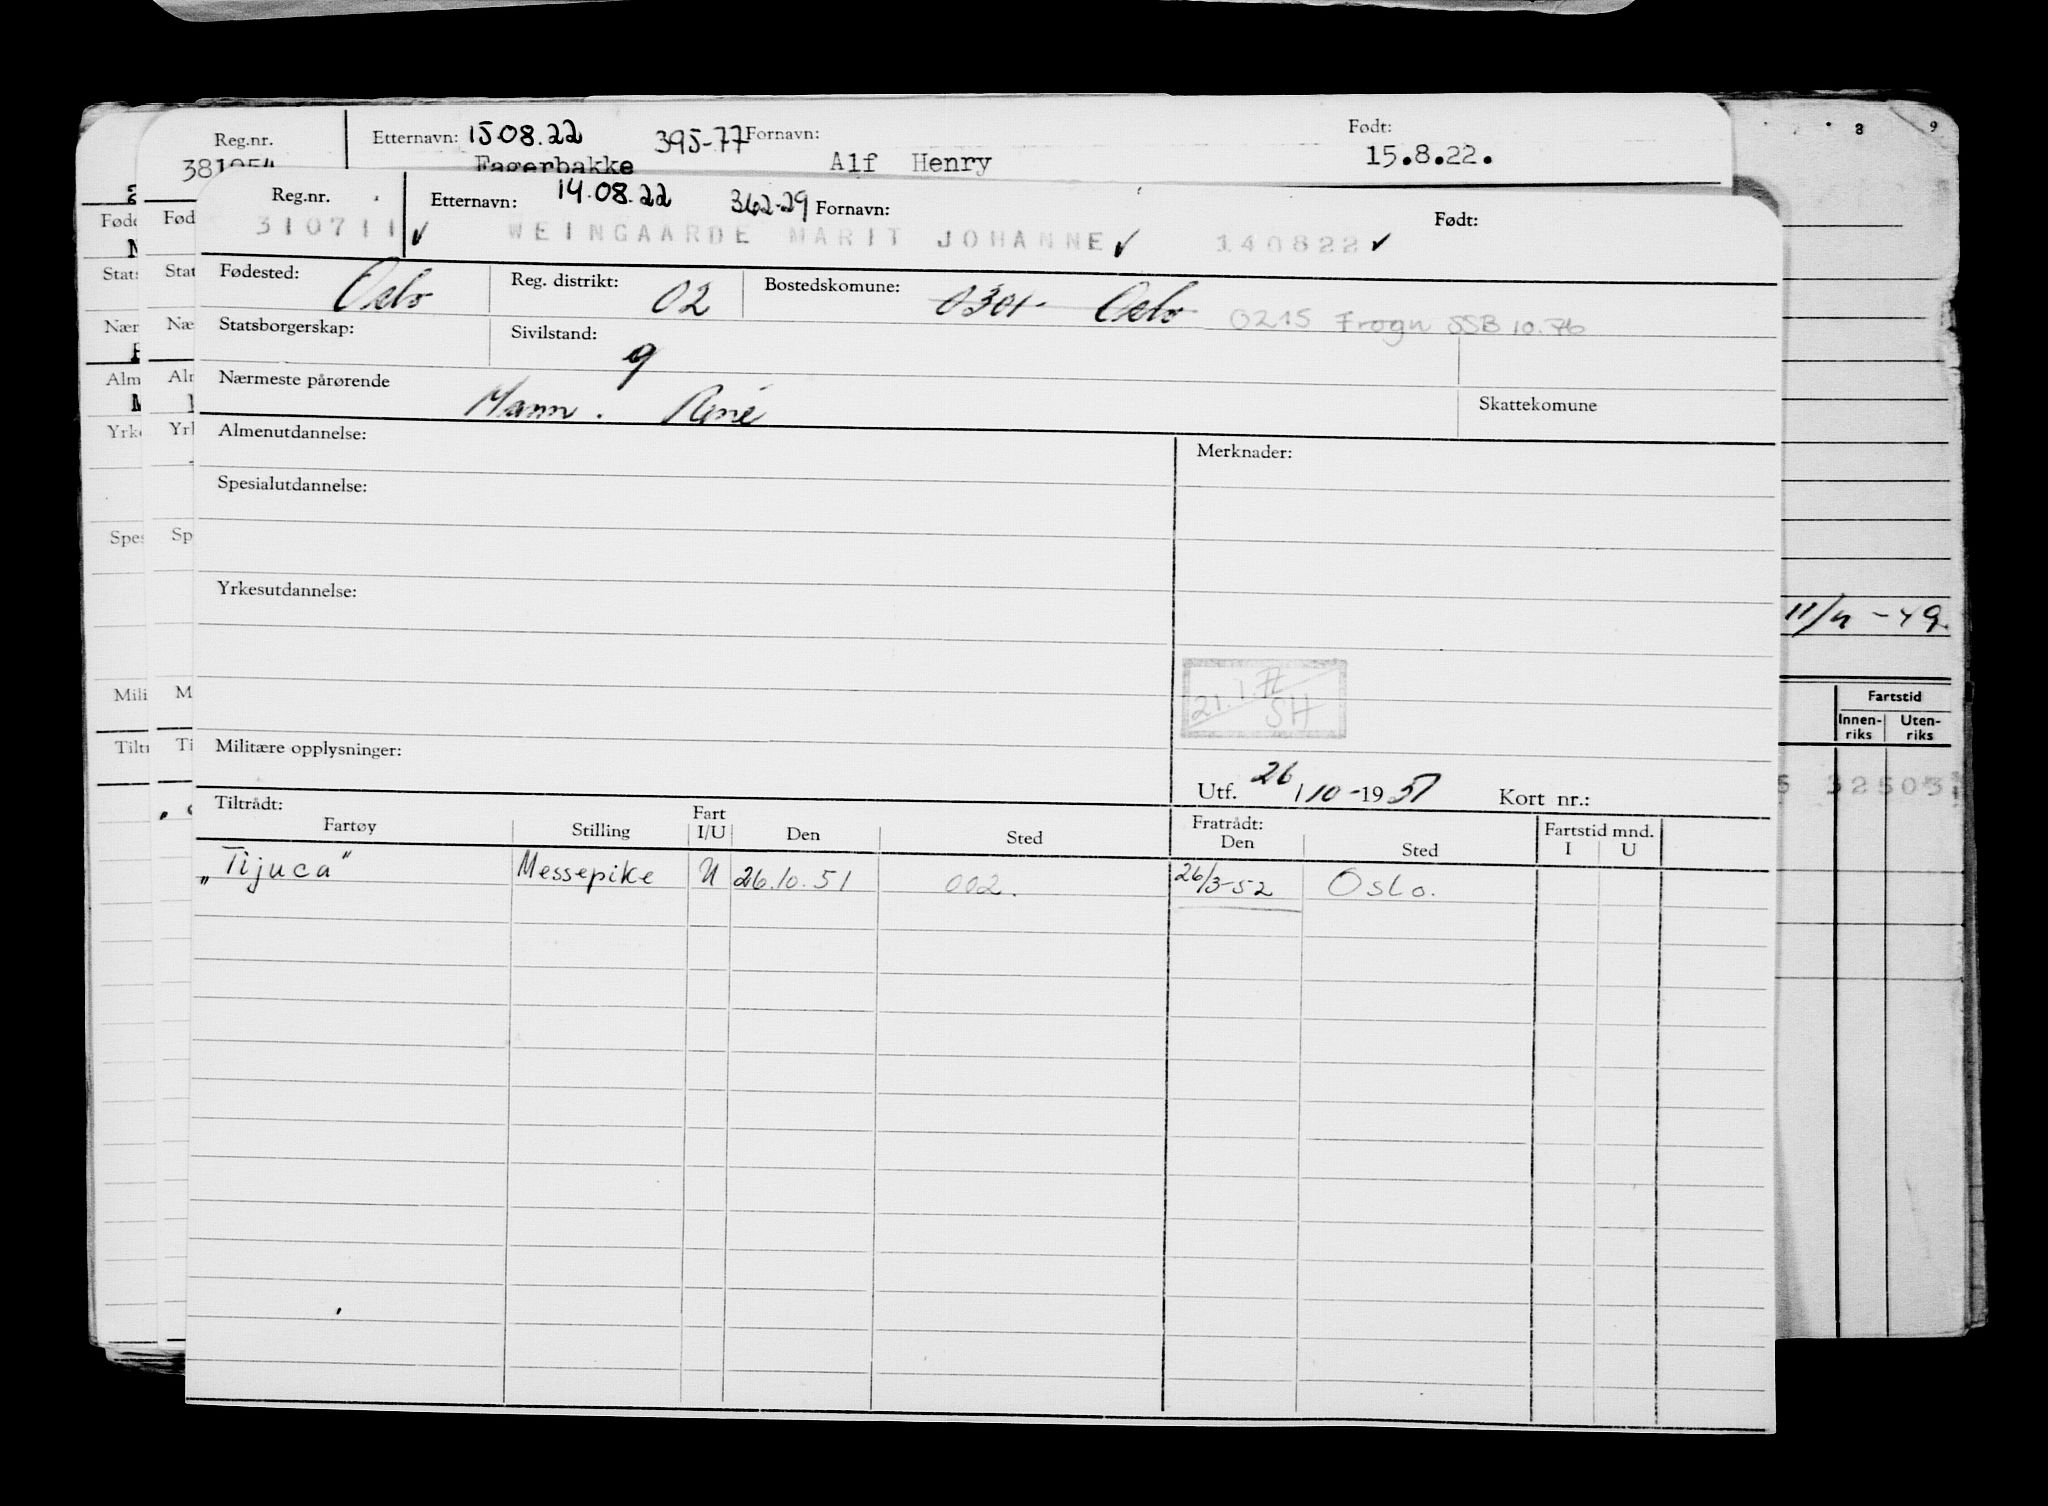 8 9
Reg.nr. Etternavn: 15.08.22 395-77 Fornavn: Født:
Fagerbakke Alf Henry 15.8.22.
Reg.nr. Etternavn: 14.08.22 362-29 Fornavn: Født:
310711 ✓ WEINGAARDE MARIT JOHANNE ✓ 140822 ✓
Fødested: Oslo Reg. distrikt: 02 Bostedskomune: 0301- Oslo 0215 Frogn SSB 10.76
Statsborgerskap: Sivilstand: g
Nærmeste pårørende Mann. René Skattekomune
Almenutdannelse: Merknader:
Spesialutdannelse:
Yrkesutdannelse:
11/4 -49
21.1.77 SH
Fartstid
Innen-riks Uten-riks
Militære opplysninger:
Utf. 26/10-1951 Kort nr.:
32503
Tiltrådt: Fratrådt:
Fartøy Stilling Fart I/U Den Sted Den Sted Fartstid mnd. I U
„Tijuca" Messepike U 26.10.51 002. 26/3-52 Oslo.